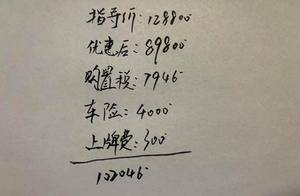 指导价：128800
优惠后：89800
购置税：7946
车险：4000
上牌费：300
102046